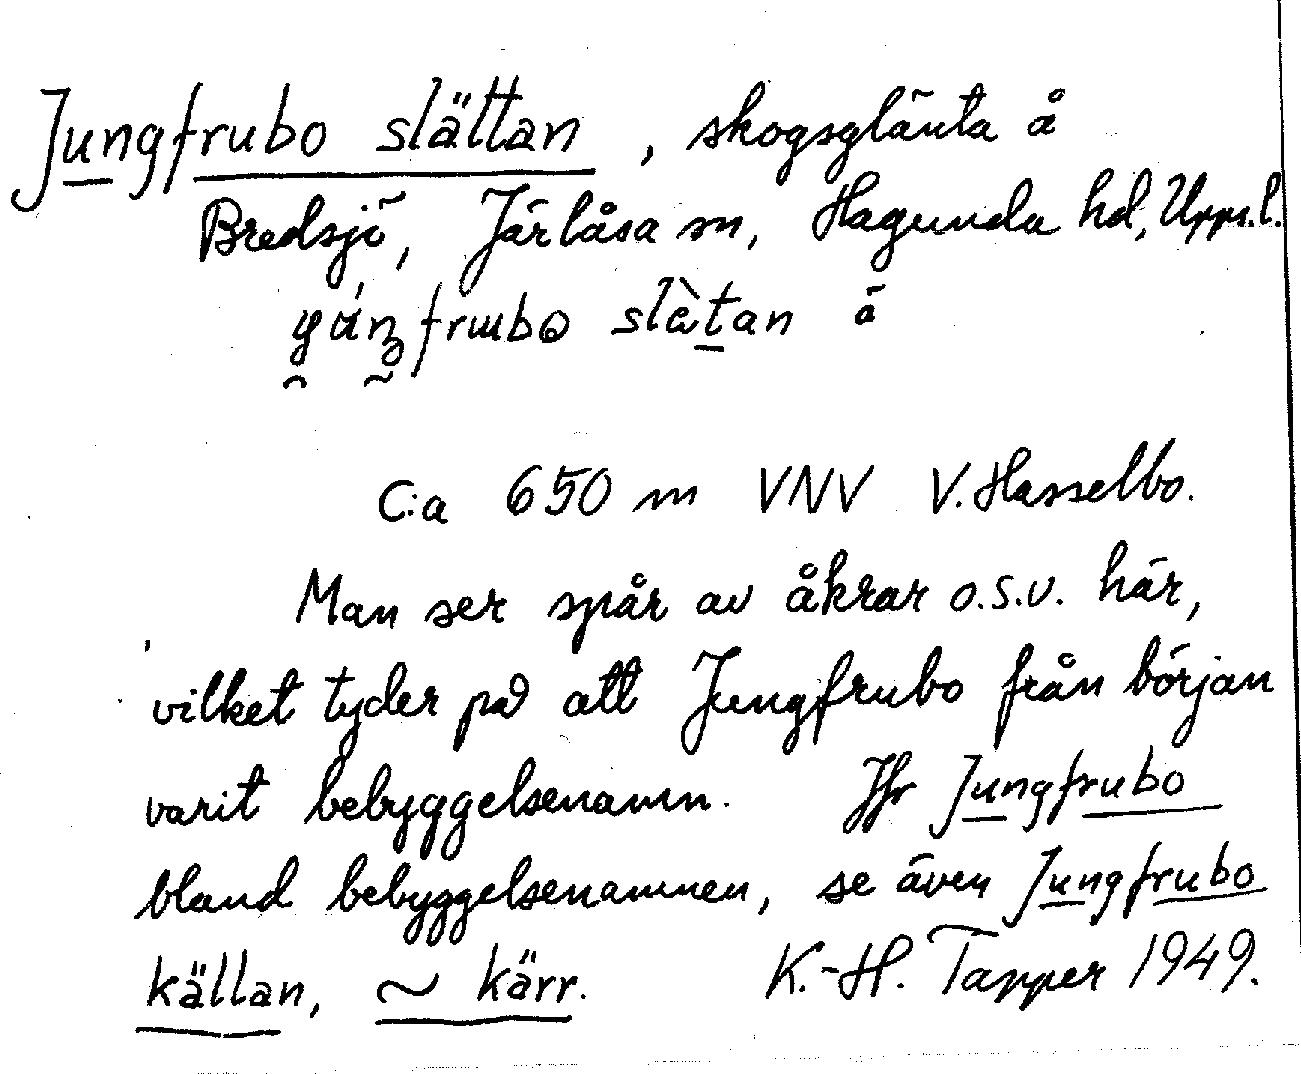 Jungfrubo slättan, skogsglänta å
Bredsjö, Järlåsa sn, Hagunda hd, Upps.l.
slàtan
C:a 650 m VNV V. Hasselbo.
Man ser spår av åkrar o.s.v. här,
vilket tyder på att Jungfrubo från början
varit bebyggelsenamn. Jfr Jungfrubo
bland bebyggelsenamnen, se även Jungfrubo
källan, ~ kärr. K.-H. Tapper 1949.